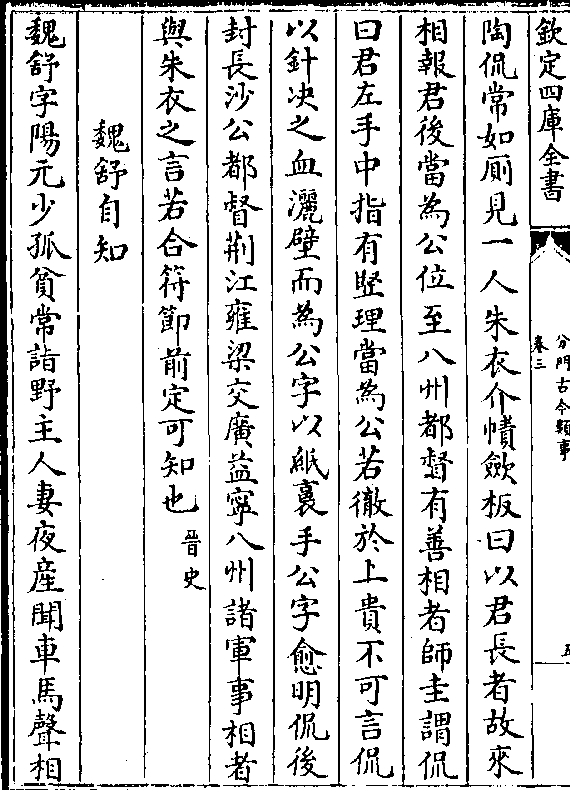 欽定四庫全書
分門古今類事
卷三
五
陶侃常如厠見一人朱衣介幘歛板曰以君長者故來
相報君後當為公位至八州都督有善相者師圭謂侃
曰君左手中指有竪理當為公若徹於上貴不可言侃
以針决之血灑壁而為公字以紙裏手公字愈明侃後
封長沙公都督荆江雍梁交廣益寧八州諸軍事相者
與朱衣之言若合符節前定可知也晉史
魏舒自知
魏舒字陽元少孤貧常詣野主人妻夜産聞車馬聲相